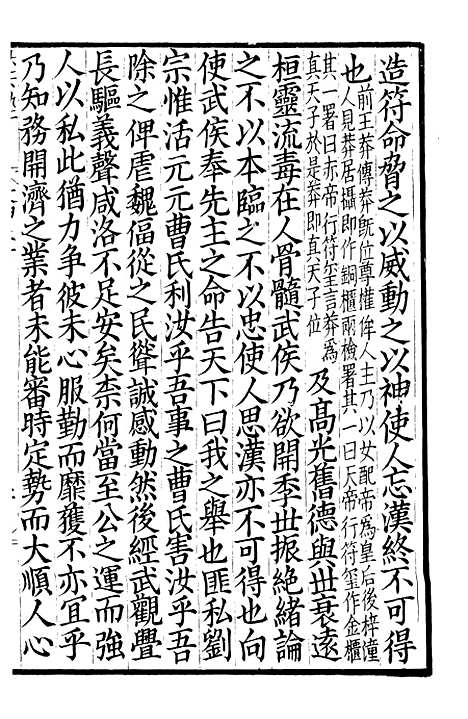 造符命脅之以威動之以神使人忘漢終不可得
也前王莽傳莽旣位尊權侔人主乃以女配帝爲皇后後梓潼
人見莽居攝即作銅櫃兩檢署其一曰天帝行符璽作金櫃
其一署曰赤帝行符璽言莽爲
真天子於是莽即真天子位
及高光舊德與世衰遠
桓靈流毒在人骨髓武侯乃欲開季世振絶緒論
之不以本臨之不以忠使人思漢亦不可得也向
使武侯奉先主之命告天下曰我之舉也匪私劉
宗惟活元元曹氏利汝乎吾事之曹氏害汝乎吾
除之俾虐魏偪從之民聳誠感動然後經武觀釁
長驅義聲咸洛不足安矣柰何當至公之運而強
人以私此猶力争彼未心服勤而靡獲不亦宜乎
乃知務開濟之業者未能審時定勢而大順人心